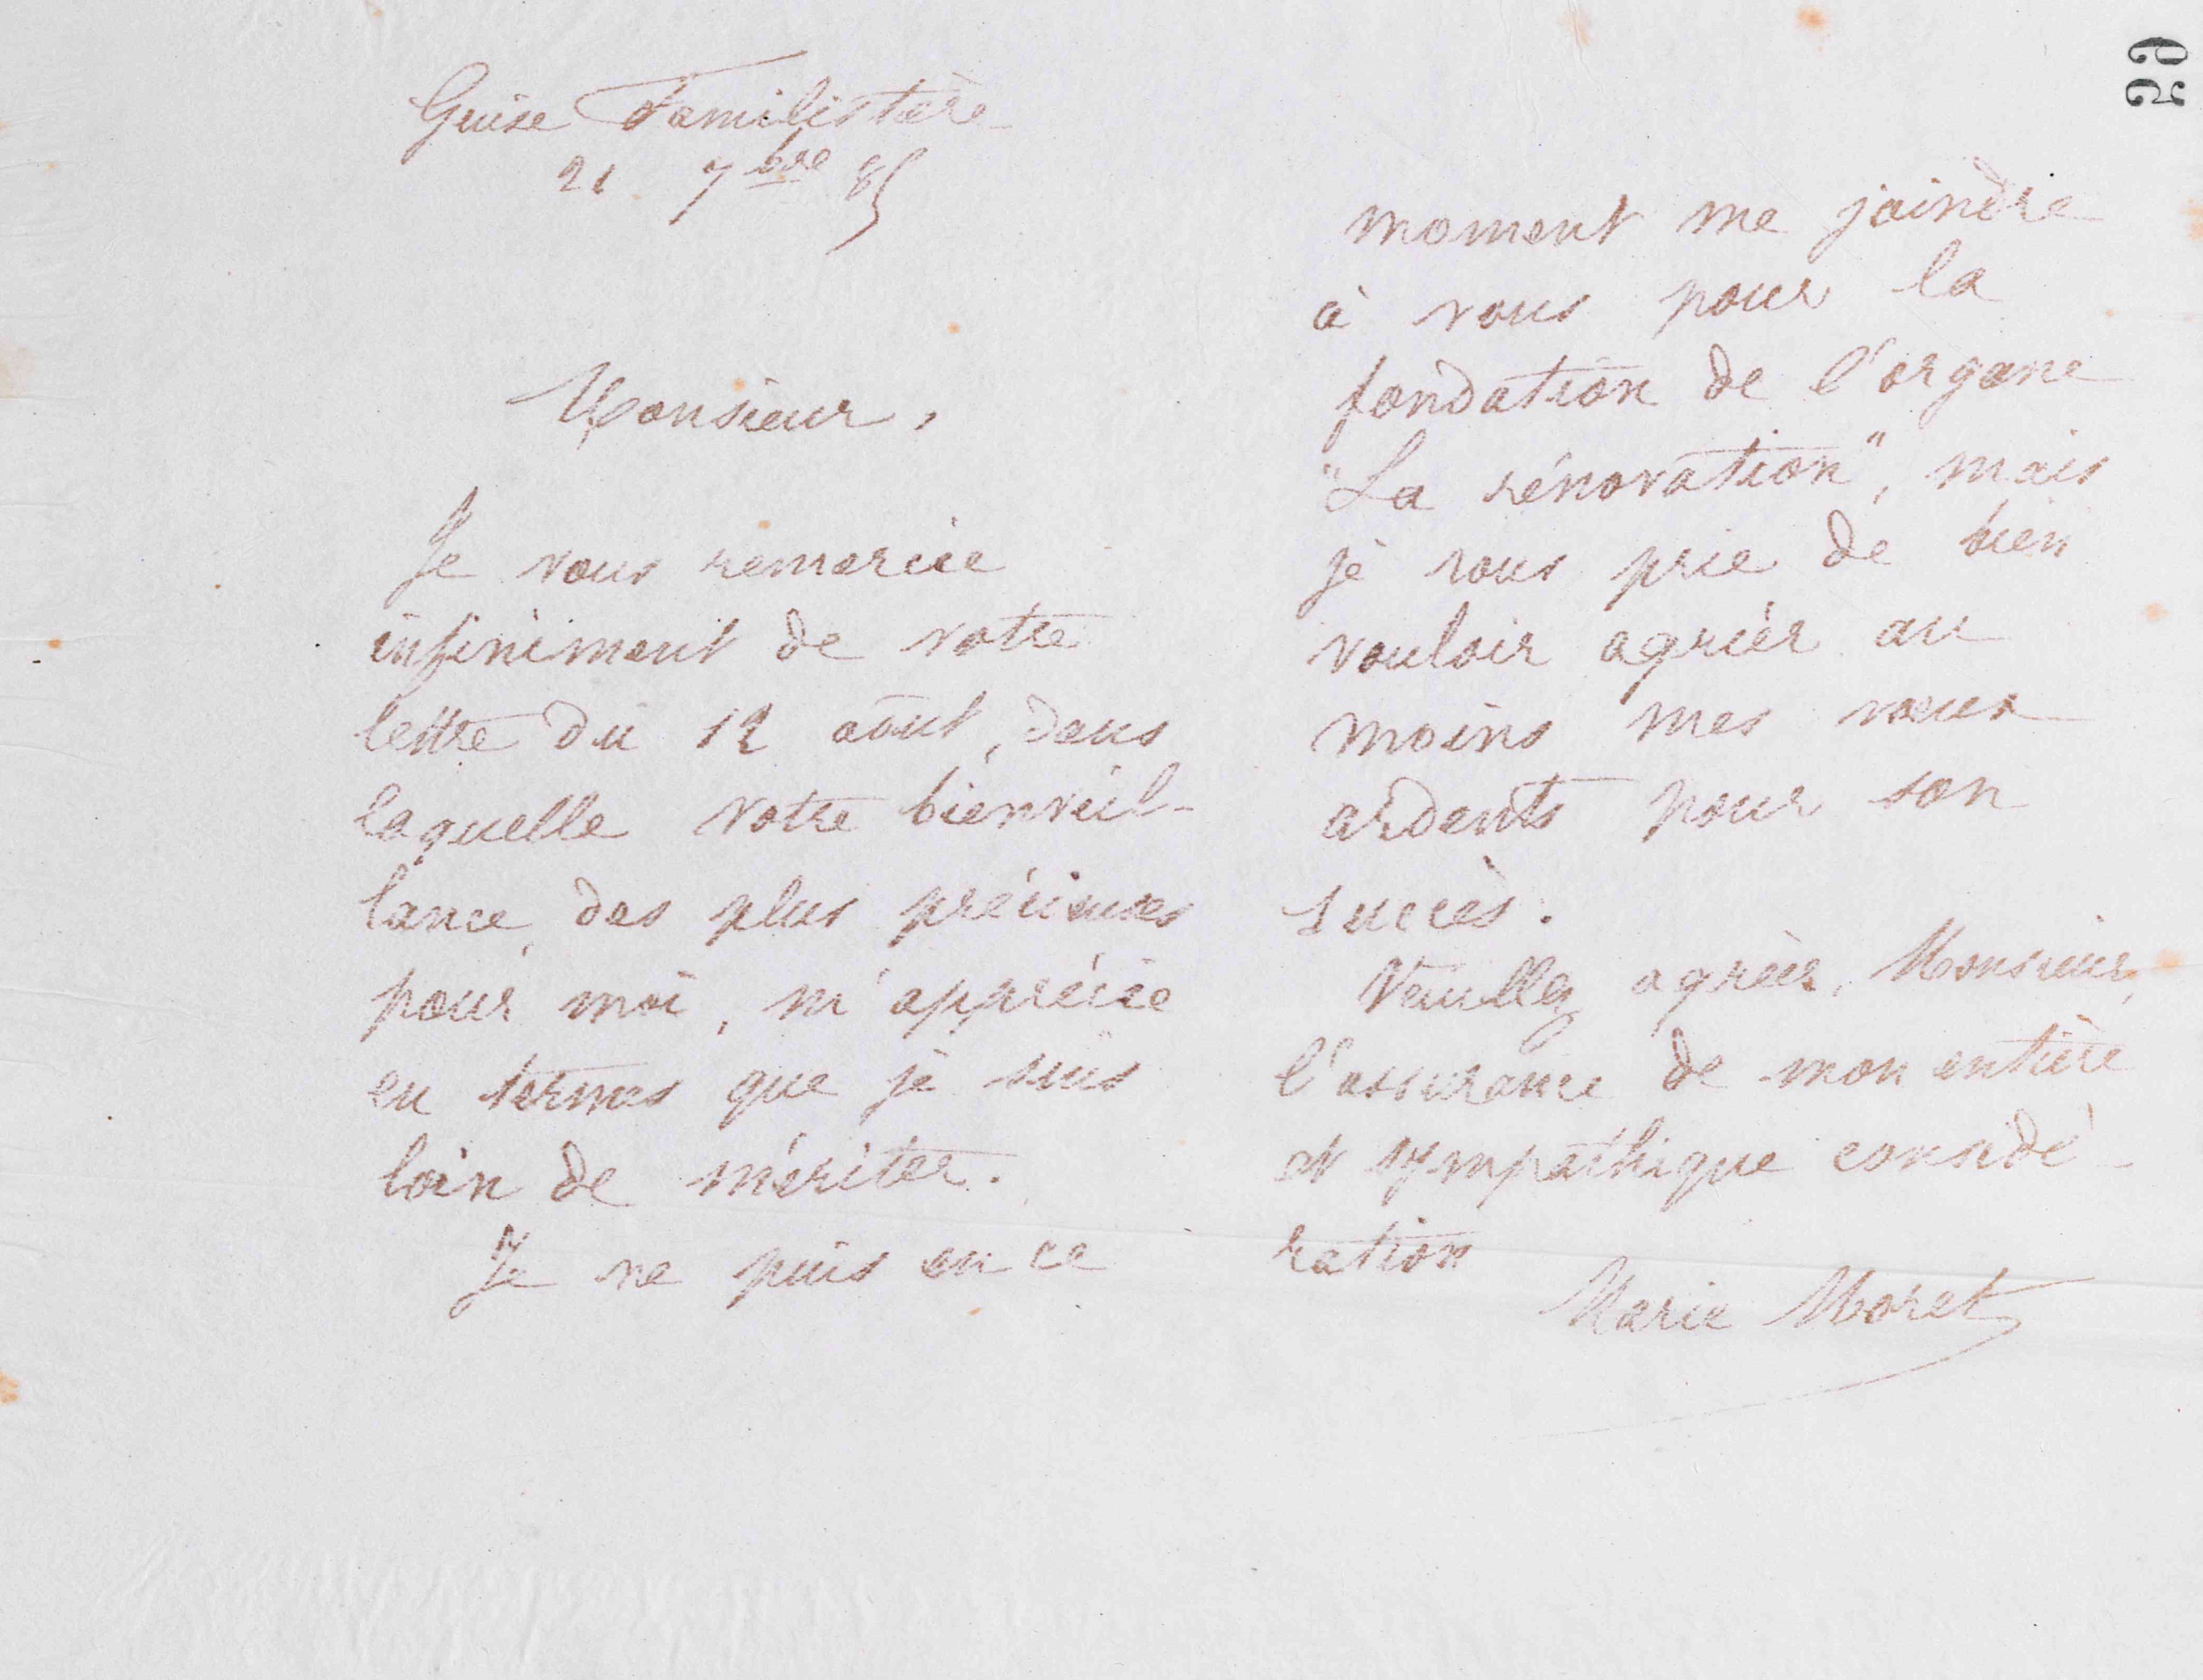 59
Guise Familistère
21 7bre 85
Monsieur,
Je vous remercie
infiniment de votre
lettre du 12 août, dans
laquelle votre bienveil-
lance, des plus précieuses
pour moi, m'apprécie
en termes que je suis
loin de mériter.
Je ne puis en ce
moment me joindre
à vous pour la
fondation de l'organe
"La rénovation", mais
je vous prie de bien
vouloir agréer au
moins mes vœux
ardents pour son
succès.
Veuillez agréer, Monsieur,
l'assurance de mon entière
et sympathique considé-
ration
Marie Moret